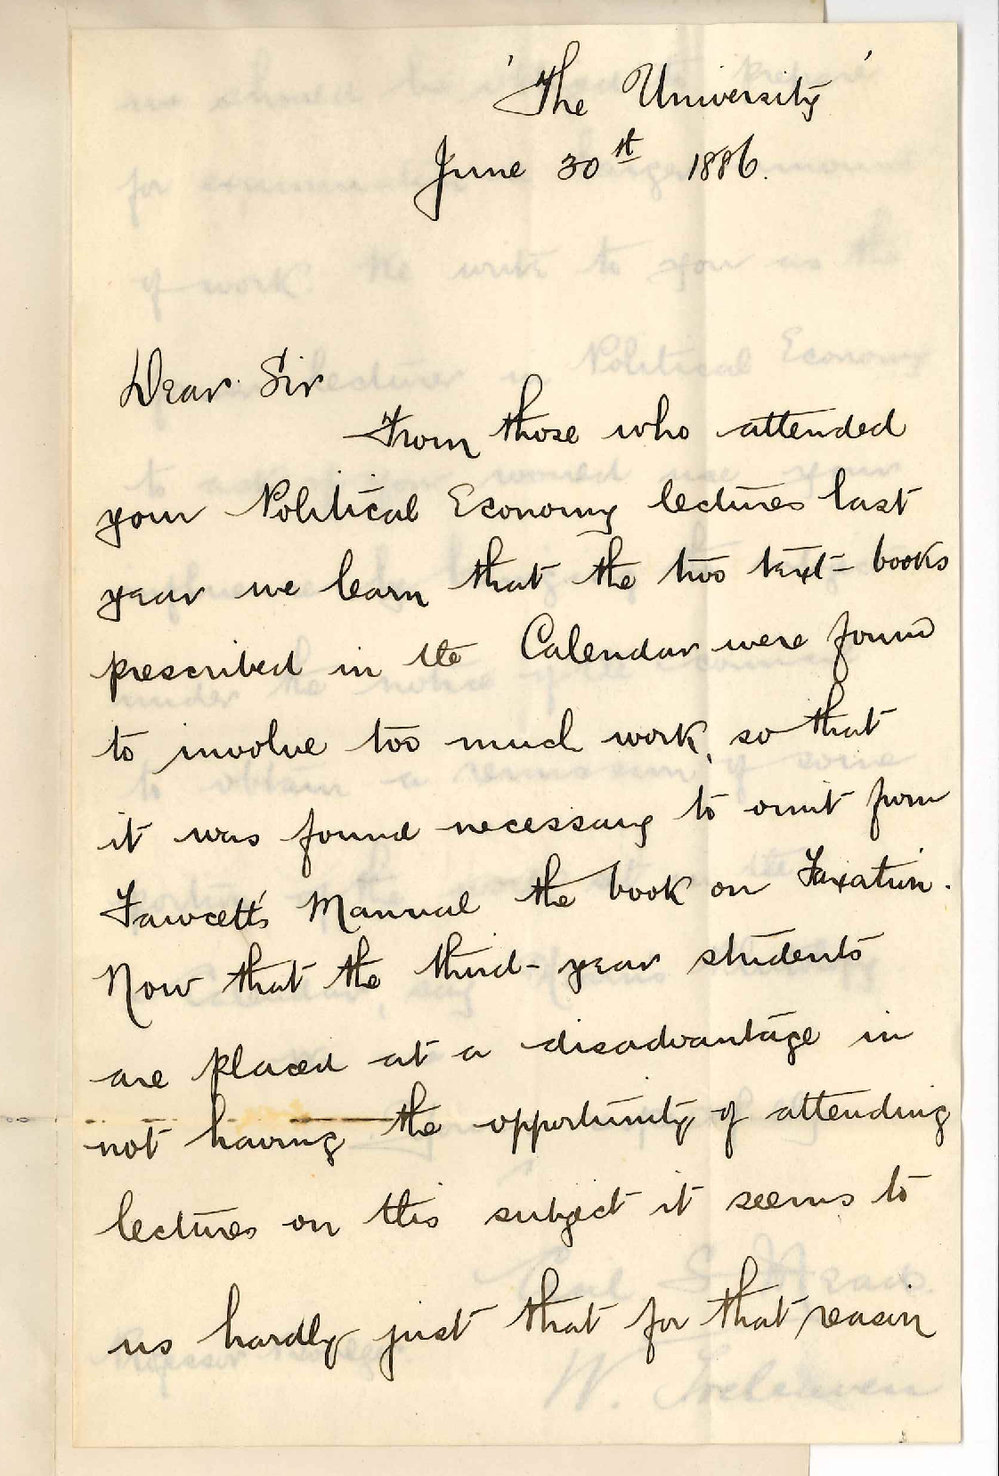 'The University'
June 30st 1886.
Dear Sir
From those who attended
your Political Economy lectures last
year we learn that the two text-books
prescribed in the Calendar were found
to involve too much work, so that
it was found necessary to omit from
Fawcett's Manual the book on Taxation.
Now that the third-year students
are placed at a disadvantage in
not having the opportunity of attending
lectures on this subject it seems to
us hardly just that for that reason